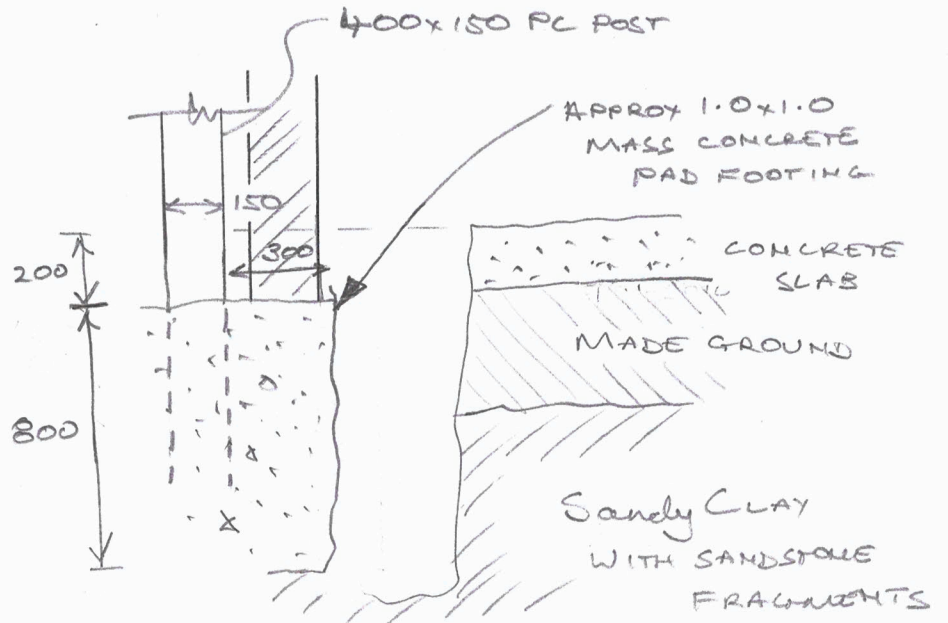 400x150 PC POST
APPROX 1.0x1.0
MASS CONCRETE
PAD FOOTING
150
200
300
CONCRETE
SLAB
MADE GROUND
800
Sandy CLAY
WITH SANDSTONE
FRAGMENTS